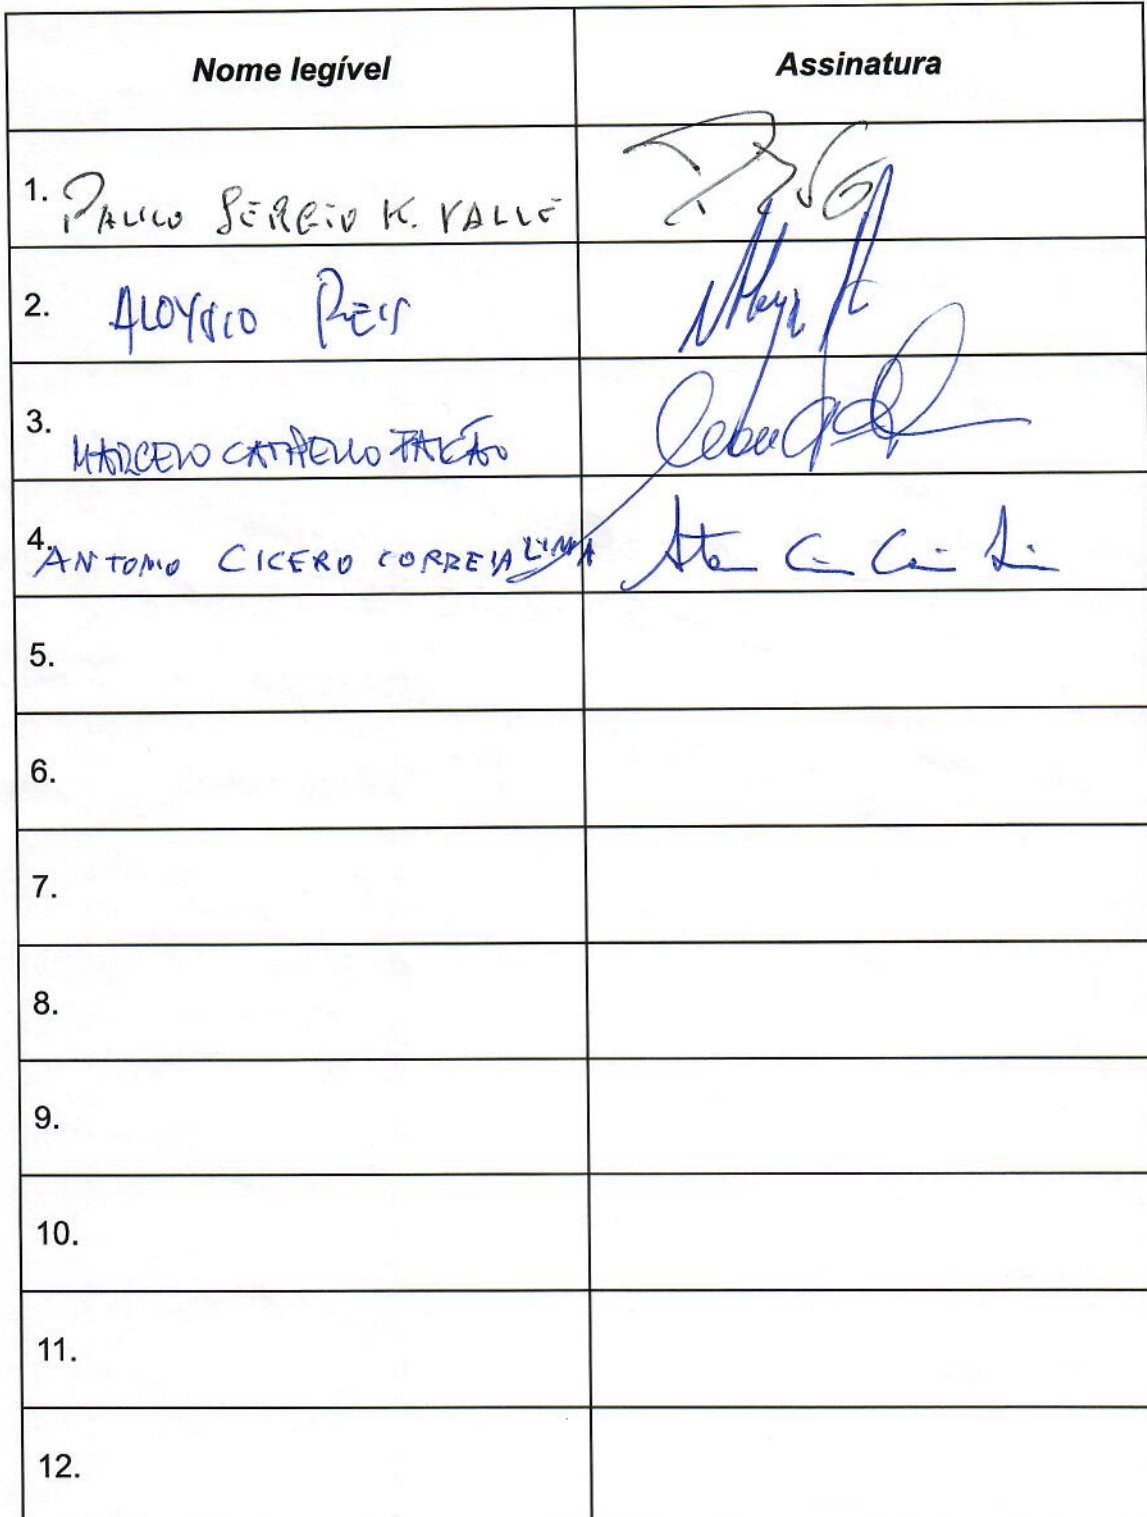 Nome legível Assinatura
1. PAULO SÉRGIO K. VALLE
2. ALOYSIO REIS
3. MARCELO FALCÃO
4. ANTONIO CICERO CORREIA LIMA
5.
6.
7.
8.
9.
10.
11.
12.